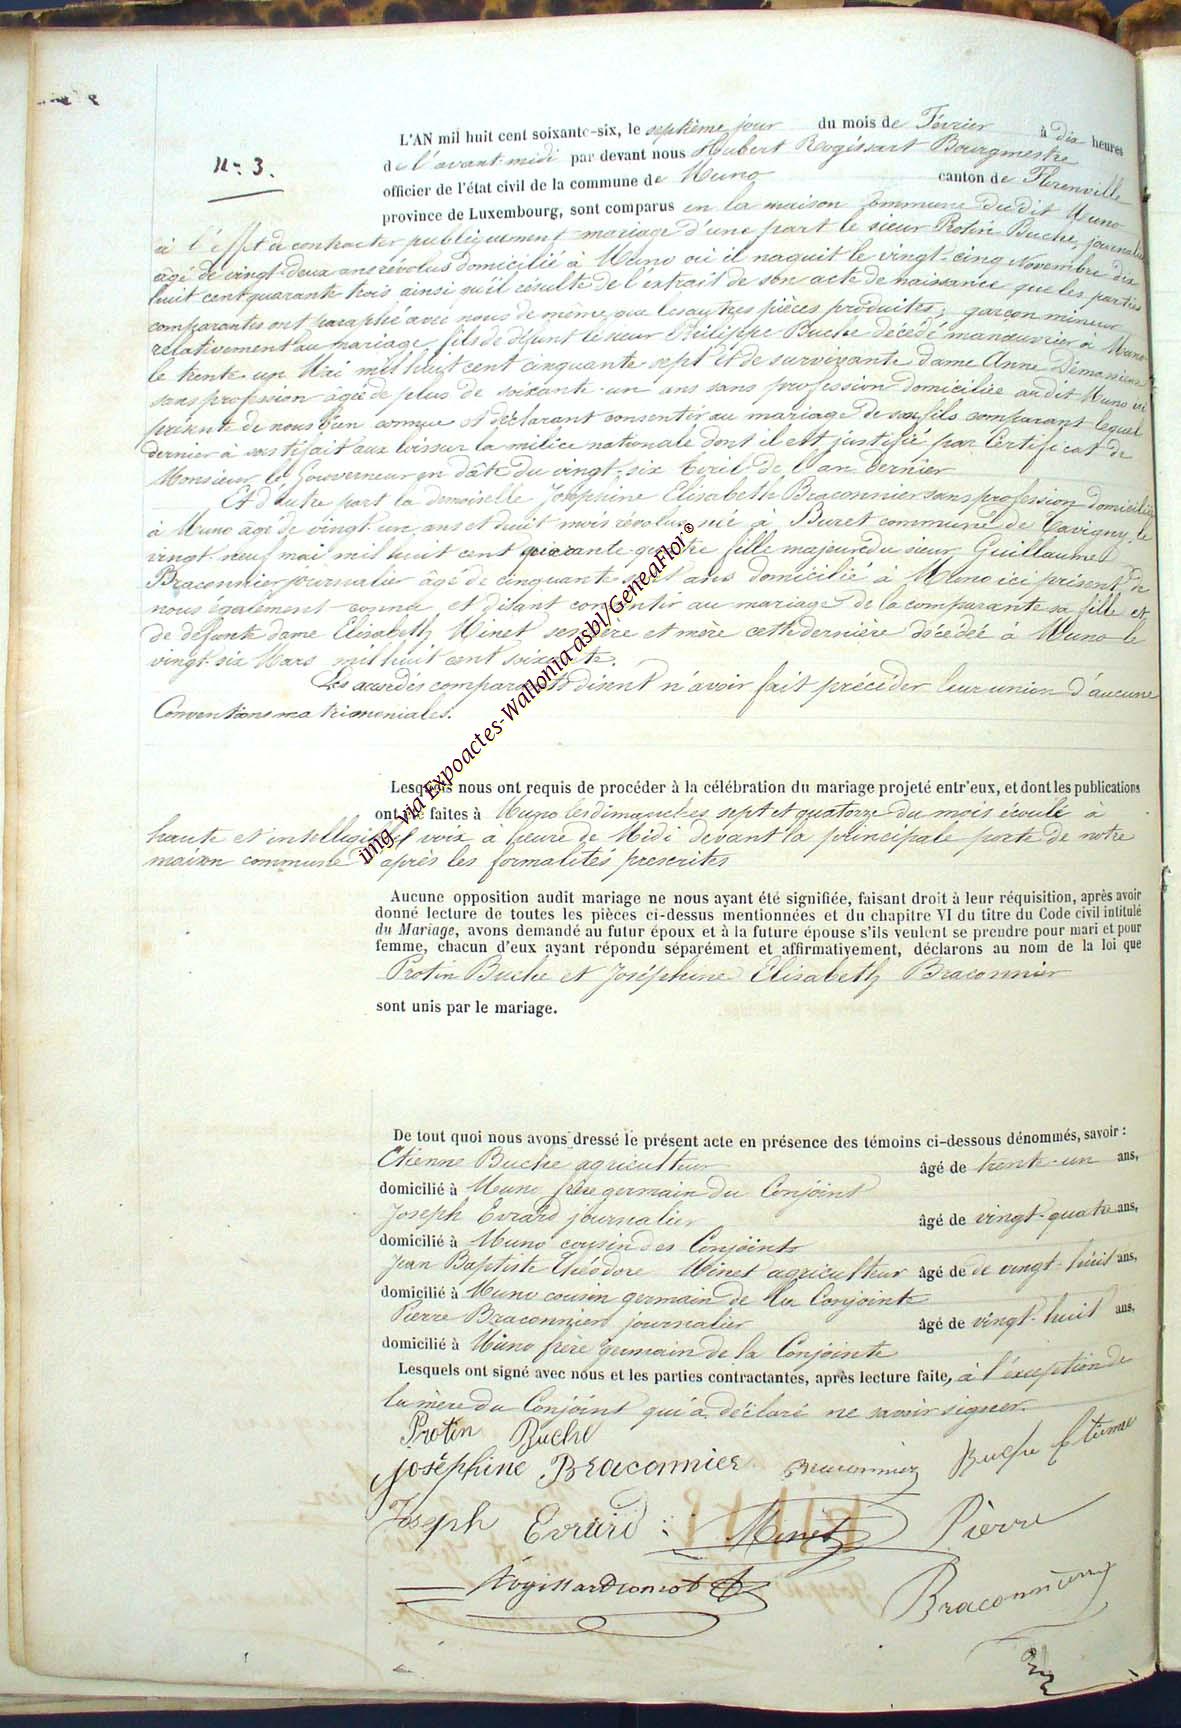 N° 3.
L'AN mil huit cent soixante-six, le septième jour du mois de Février à dix heures
de l'avant midi par devant nous Hubert Rogissart Bourgmestre
officier de l'état civil de la commune de Muno canton de Florenville
province de Luxembourg, sont comparus en la maison commune dudit Muno
à l'effet de contracter publiquement mariage d'une part le sieur Protin Buche, journalier
âgé de vingt-deux ans révolus domicilié à Muno où il naquit le vingt-cinq Novembre dix
huit cent quarante trois ainsi qu'il résulte de l'extrait de son acte de naissance que les parties
comparantes ont paraphé avec nous de même que les autres pièces produites; garçon mineur
relativement au mariage, fils de défunt le sieur Philippe Buche décédé manouvrier à Muno
le trente un Mai mil huit cent cinquante-sept et de survivante dame Anne
sans profession âgée de plus de soixante-un ans sans profession domiciliée audit Muno ici
présente de nous bien connue et déclarant consentir au mariage de son fils comparant lequel
dernier à satisfait aux lois sur la milice nationale dont il est justifié par Certificat de
Monsieur le Gouverneur en date du vingt-six Avril de l'an dernier
Et d'autre part la demoiselle Joséphine Elisabeth Braconnier sans profession domiciliée
à Muno âgé de vingt-un ans et huit mois révolus né à Buret commune de Tavigny, le
vingt-neuf mai mil huit cent quarante-quatre fille majeure du sieur Guillaume
Braconnier journalier âgé de cinquante ans domicilié à Muno ici présent, de
nous également connu et disant consentir au mariage de la comparante sa fille et
de défunte dame Elisabeth Minet ses père et mère cette dernière décédée à Muno le
vingt-six Mars mil huit cent soixante.
Les susdits comparants disent n'avoir fait précéder leur union d'aucune
Conventions matrimoniales.
img via Expoactes-Wallonia asbl/GeneaFlor®
Lesquels nous ont requis de procéder à la célébration du mariage projeté entr'eux, et dont les publications
ont été faites à Muno les dimanches sept et quatorze du mois écoulé à
haute et intelligible voix à heure de Midi devant la principale porte de notre
maison commune après les formalités prescrites
Aucune opposition audit mariage ne nous ayant été signifiée, faisant droit à leur réquisition, après avoir
donné lecture de toutes les pièces ci-dessus mentionnées et du chapitre VI du titre du Code civil intitulé
du Mariage, avons demandé au futur époux et à la future épouse s'ils veulent se prendre pour mari et pour
femme, chacun d'eux ayant répondu séparément et affirmativement, déclarons au nom de la loi que
Protin Buche et Joséphine Elisabeth Braconnier
sont unis par le mariage.
De tout quoi nous avons dressé le présent acte en présence des témoins ci-dessous dénommés, savoir :
Etienne Buche agriculteur âgé de trente-un ans,
domicilié à Muno frère germain du Conjoint
Joseph Evrard journalier âgé de vingt-quatre ans,
domicilié à Muno cousin des Conjoints
Jean Baptiste Théodore Minet agriculteur âgé de de vingt-huit ans,
domicilié à Muno cousin germain de la Conjointe
Pierre Braconnier journalier âgé de vingt-huit ans,
domicilié à Muno frère germain de la Conjointe
Lesquels ont signé avec nous et les parties contractantes, après lecture faite, à l'exception de
la mère du Conjoint qui a déclaré ne savoir signer.
Protin Buche
Joséphine Braconnier Braconnier Buche Etienne
Joseph Evrard Minet Pierre
Braconnier